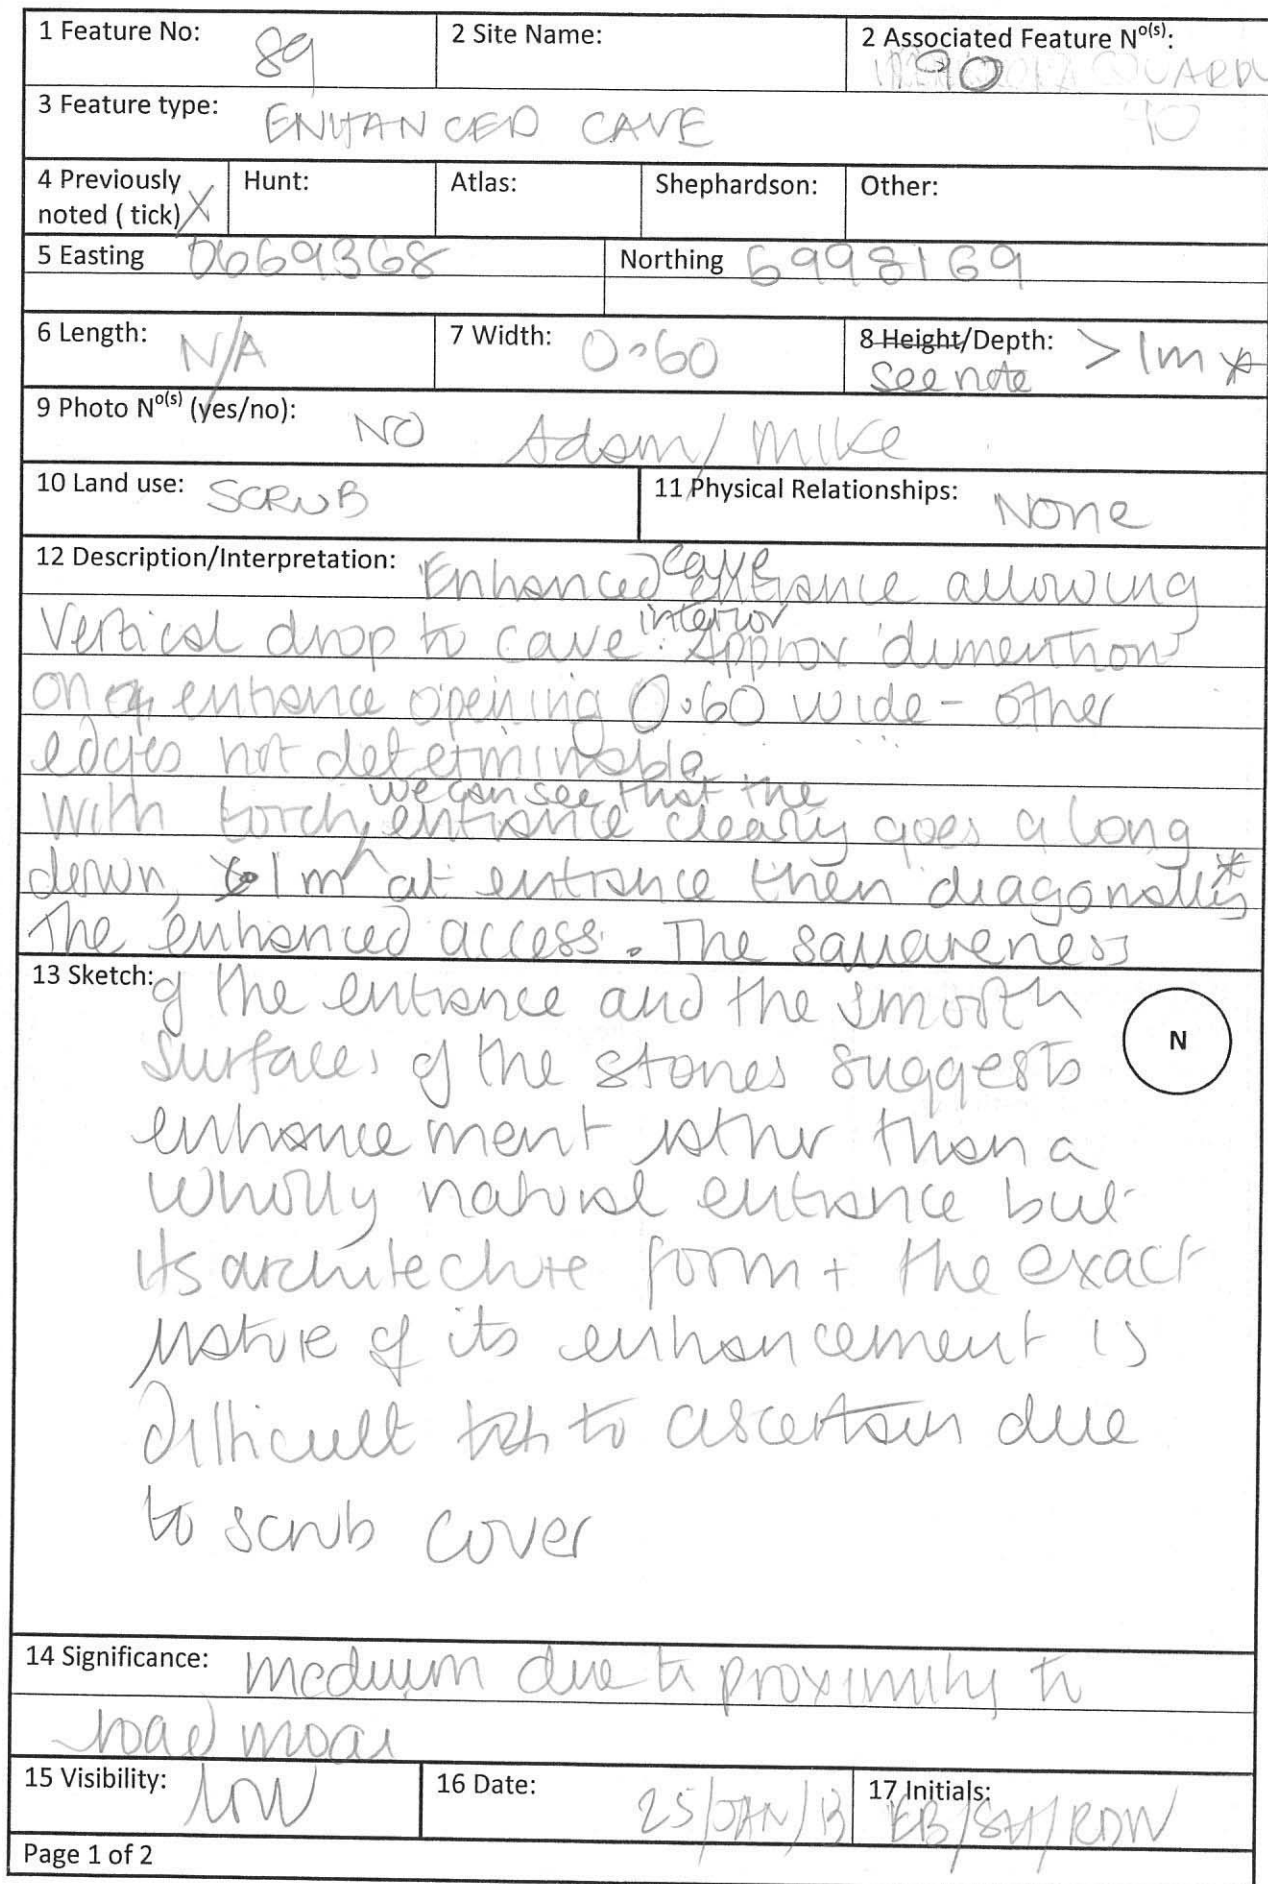 1 Feature No: 89
2 Site Name:
2 Associated Feature No(s): 90
90
3 Feature type: ENHANCED CAVE
4 Previously noted ( tick) X
Hunt:
Atlas:
Shephardson:
Other:
5 Easting 0669368
Northing 6998169
6 Length: N/A
7 Width: 0.60
8 Height/Depth: >1m *
See note
9 Photo No(s) (yes/no): NO Adam/Mike
10 Land use: SCRUB
11 Physical Relationships: None
12 Description/Interpretation: Enhanced cave entrance allowing
Vertical drop to cave interior. Approx dimenthion
on entrance opening 0.60 wide - other
edges not determinable.
With torch, we can see that the entrance clearly goes a long
down, 1m at entrance then diagonally *
The enhanced access. The squareness
13 Sketch: of the entrance and the smooth
surfaces of the stones suggests
enhancement rather than a
wholly natural entrance but
its architechure form + the exact
nature of its enhancement is
difficult to ascertain due
to scrub cover
N
14 Significance: medium due to proximity to
road moai
15 Visibility: low
16 Date: 25/JAN/13
17 Initials: EB/SH/RDW
Page 1 of 2